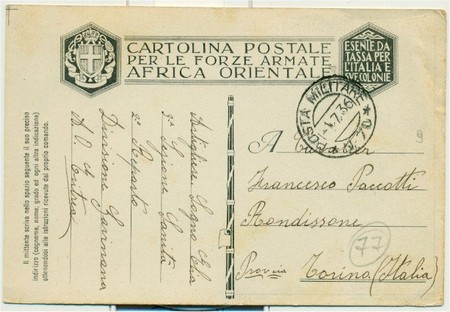 CARTOLINA POSTALE
PER LE FORZE ARMATE
AFRICA ORIENTALE
ESENTE DA
TASSA PER
L'ITALIA E
SVE COLONIE
POSTA MILITARE
1.7.36
Il mittente scriva nello spazio seguente il suo preciso
indirizzo (cognome, nome, grado ed ogni altra indicazione)
attenendosi alle istruzioni ricevute dal proprio comando.
Artigliere Sogno
3ª Sezione Sanità
2º Reparto
Divisione Gavinana
A. O. Eritrea
A
Francesco Pacotti
Rondissone
Provvia Torino (Italia)
77
9